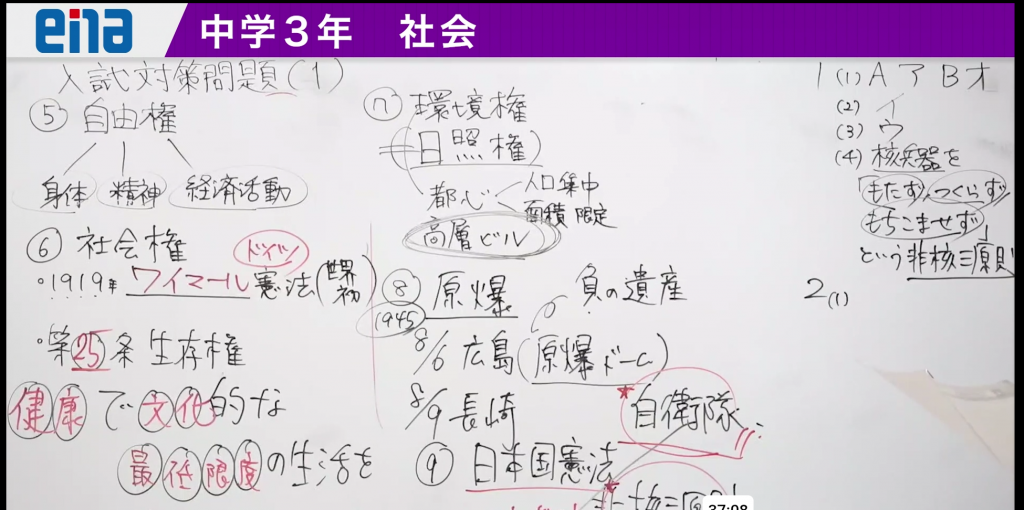 ena 中学3年 社会
入試対策問題(1)
⑤ 自由権
身体 精神 経済活動
⑥ 社会権
ドイツ
・1919年 ワイマール憲法(世界初)
・第25条 生存権
健康で文化的な
最低限度の生活を
⑦ 環境権
日照権
都心
人口集中
面積限定
高層ビル
⑧ 原爆
負の遺産
1945
8/6 広島(原爆ドーム)
8/9 長崎
自衛隊
⑨ 日本国憲法
1 (1) A ア B オ
(2) イ
(3) ウ
(4) 核兵器を
「もたず、つくらず
もちこませず」
という非核三原則
2 (1)
37:08